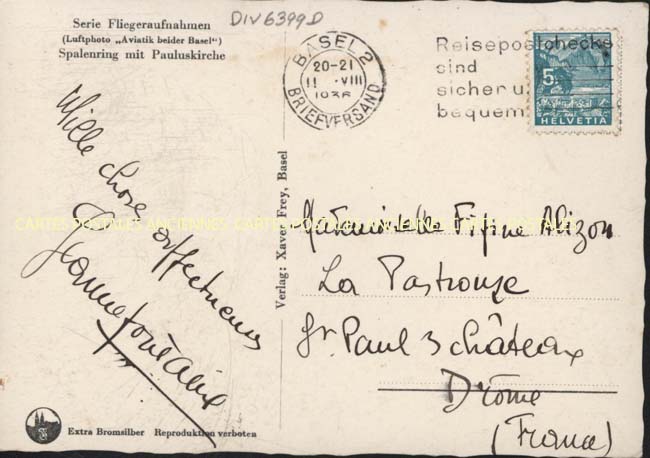 DIV6399D
Serie Fliegeraufnahmen
(Luftphoto „Aviatik beider Basel“)
Spalenring mit Pauluskirche
BASEL 2
20-21
11. VIII
1936
BRIEFVERSAND
Reisepostchecks
sind
sicher u.
bequem
5
HELVETIA
Mille choses affectueuses
Jeanne
Verlag: Xaver Frey, Basel
CARTES POSTALES ANCIENNES CARTES POSTALES ANCIENNES CARTES POSTALES
Mademoiselle Fifine Alizon
La
St Paul 3 châteaux
Drôme
(France)
Extra Bromsilber Reproduktion verboten